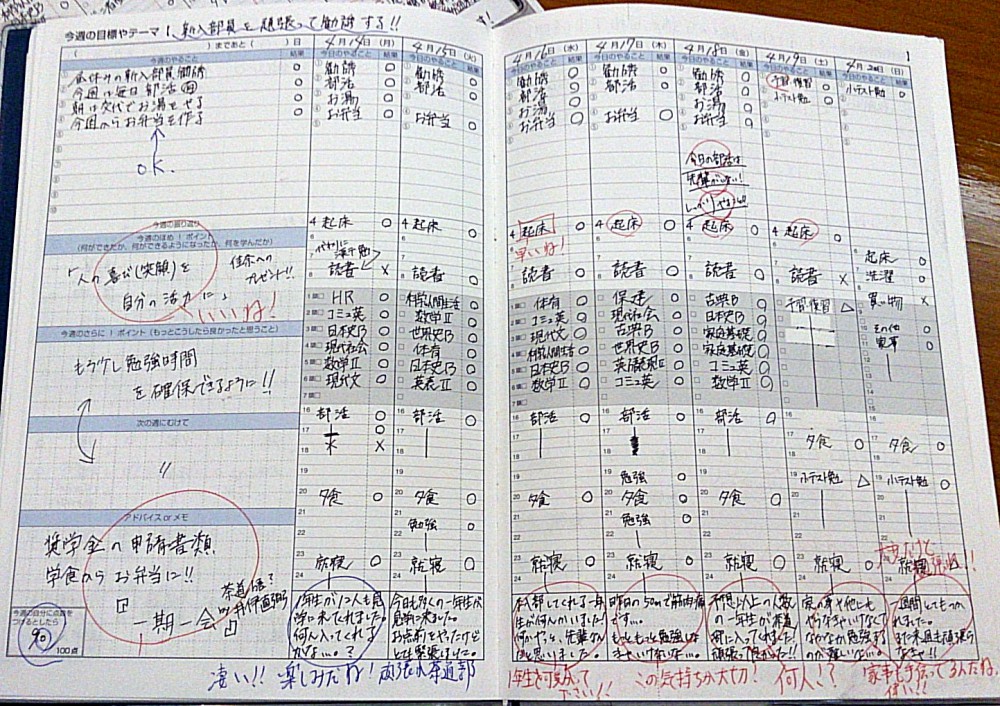 今週の目標やテーマ 新入部員を頑張って勧誘する!!
( )まであと( )日
今週のやること 結果
昼休みの新入部員勧誘 ○
今週は毎日部活 ○
朝は交代でお湯をやる ○
今週からお弁当を作る ○
OK.
今週の振り返り
今週のほめ!ポイント
(何ができたか、何ができるようになったか、何を学んだか)
「人の喜び(笑顔)を
自分の活力に」
いいね!
今週のさらに!ポイント(もっとこうしたら良かったと思うこと)
もう少し勉強時間
を確保できるように!!
次の週にむけて
〃
アドバイスorメモ
奨学金の申請書類
学食からお弁当に!!
『一期一会』
今週の自分に点数をつけるとしたら
90
100点
4月14日(月)
今日のやること 結果
勧誘 ○
部活 ○
お湯 ○
お弁当 ○
4 起床 ○
読書 ×
HR ○
コミュ英 ○
日本史B ○
現代社会 ○
数学Ⅱ ○
現代文 ○
部活 ○
夕食 ○
就寝 ○
4月15日(火)
今日のやること 結果
勧誘 ○
部活 ○
お弁当 ○
4 起床 ○
読書 ○
科学と人間生活 ○
数学Ⅱ ○
世界史B ○
体育 ○
日本史B ○
英表Ⅱ ○
部活 ○
夕食 ○
勉強 ○
就寝 ○
今日も多くの一年生が
見学に来ました。
お点前をやったけど
とても緊張しました。
凄い!! 楽しみだね! 頑張れ茶道部
4月16日(水)
今日のやること 結果
勧誘 ○
部活 ○
お湯 ○
お弁当 ○
4 起床 ○
早いね!
読書 ○
体育 ○
コミュ英 ○
現代文 ○
科学と人間生活 ○
日本史B ○
数学Ⅱ ○
部活 ○
夕食 ○
就寝 ○
4月17日(木)
今日のやること 結果
勧誘 ○
部活 ○
お弁当 ○
4 起床 ○
読書 ○
保健 ○
現代社会 ○
古典B ○
世界史B ○
英語表現Ⅱ ○
コミュ英 ○
部活 ○
勉強 ○
夕食 ○
勉強 ○
就寝 ○
昨日の50mで筋肉痛
です…。
もっともっと勉強しな
きゃいけない…。
この気持ちが大切!
4月18日(金)
今日のやること 結果
勧誘 ○
部活 ○
お湯 ○
お弁当 ○
今日の部活は
先輩がいない!
しっかりやる
4 起床 ○
読書 ○
古典B ○
日本史B ○
家庭基礎 ○
家庭基礎 ○
コミュ英 ○
数学Ⅱ ○
部活 ○
夕食 ○
就寝 ○
予想以上の人数
の一年生が茶道
部に入ってくれました。
頑張って良かった!!
何人!?
4月19日(土)
今日のやること 結果
予習・復習 ○
小テスト勉 ○
4 起床 ○
読書 ×
予習復習 △
夕食 ○
小テスト勉 △
就寝 ○
家の事や他にも
やらなきゃいけなくて
なかなか勉強する
のが難しいな…。
家事も手伝ってるんだね。
偉い!!
4月20日(日)
今日のやること 結果
小テスト勉 ○
起床 ○
洗濯 ○
買い物 ×
その他 ○
家事 ○
夕食 ○
小テスト勉 ○
就寝 ○
一週間とてもつか
れました。
また来週も頑張ら
なきゃ!!